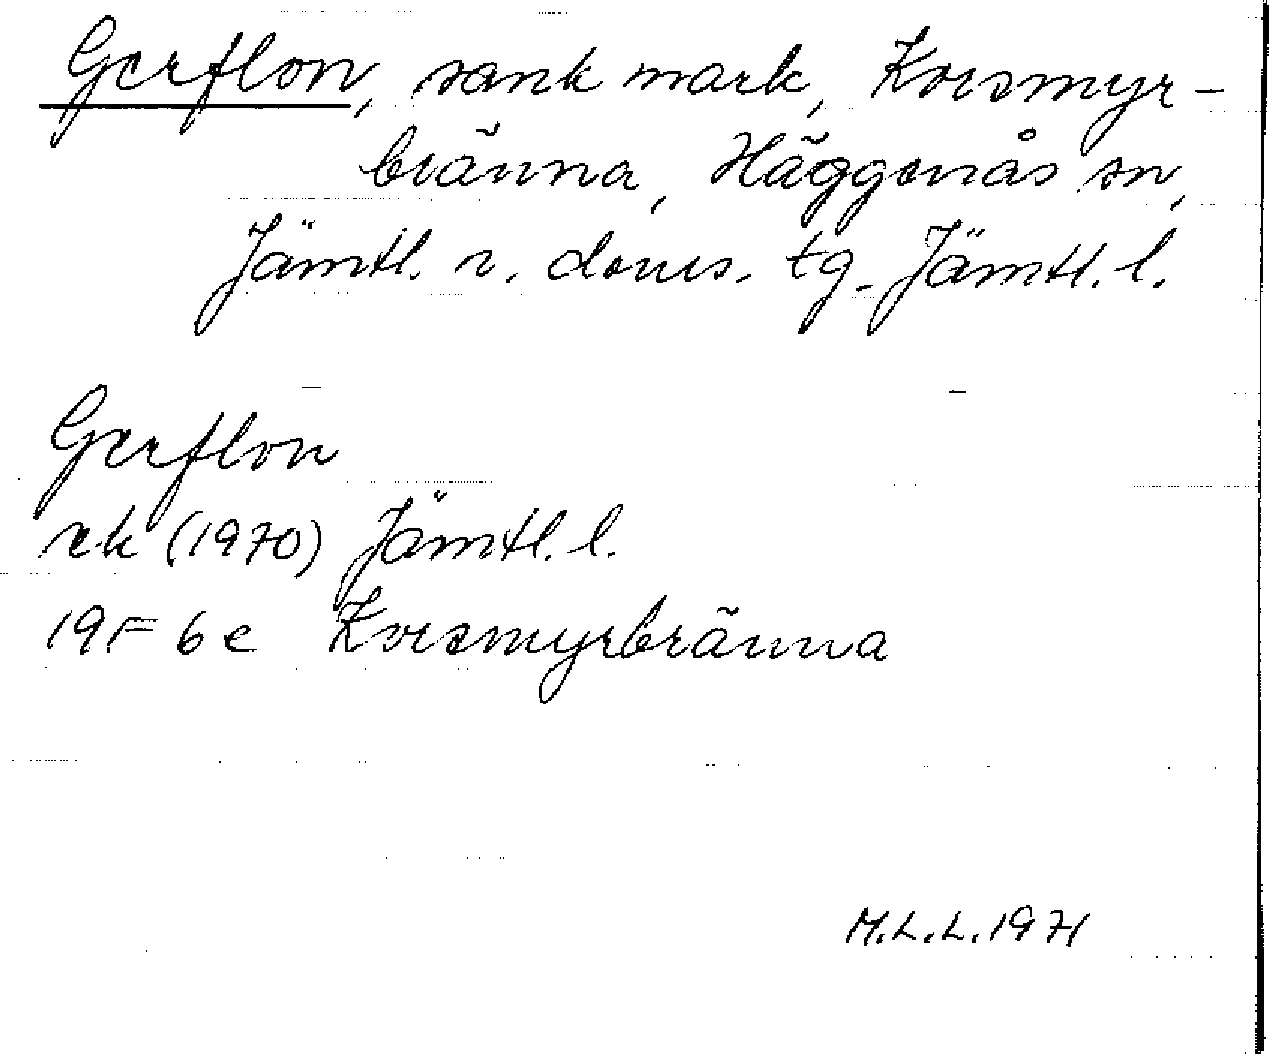 Gerflon, sank mark, Korsmyr-
bränna, Häggenås sn,
Jämtl. n. doms. tg. Jämtl. l.
Gerflon
ek (1970) Jämtl. l.
19F 6e Korsmyrbränna
M.L.L. 1971